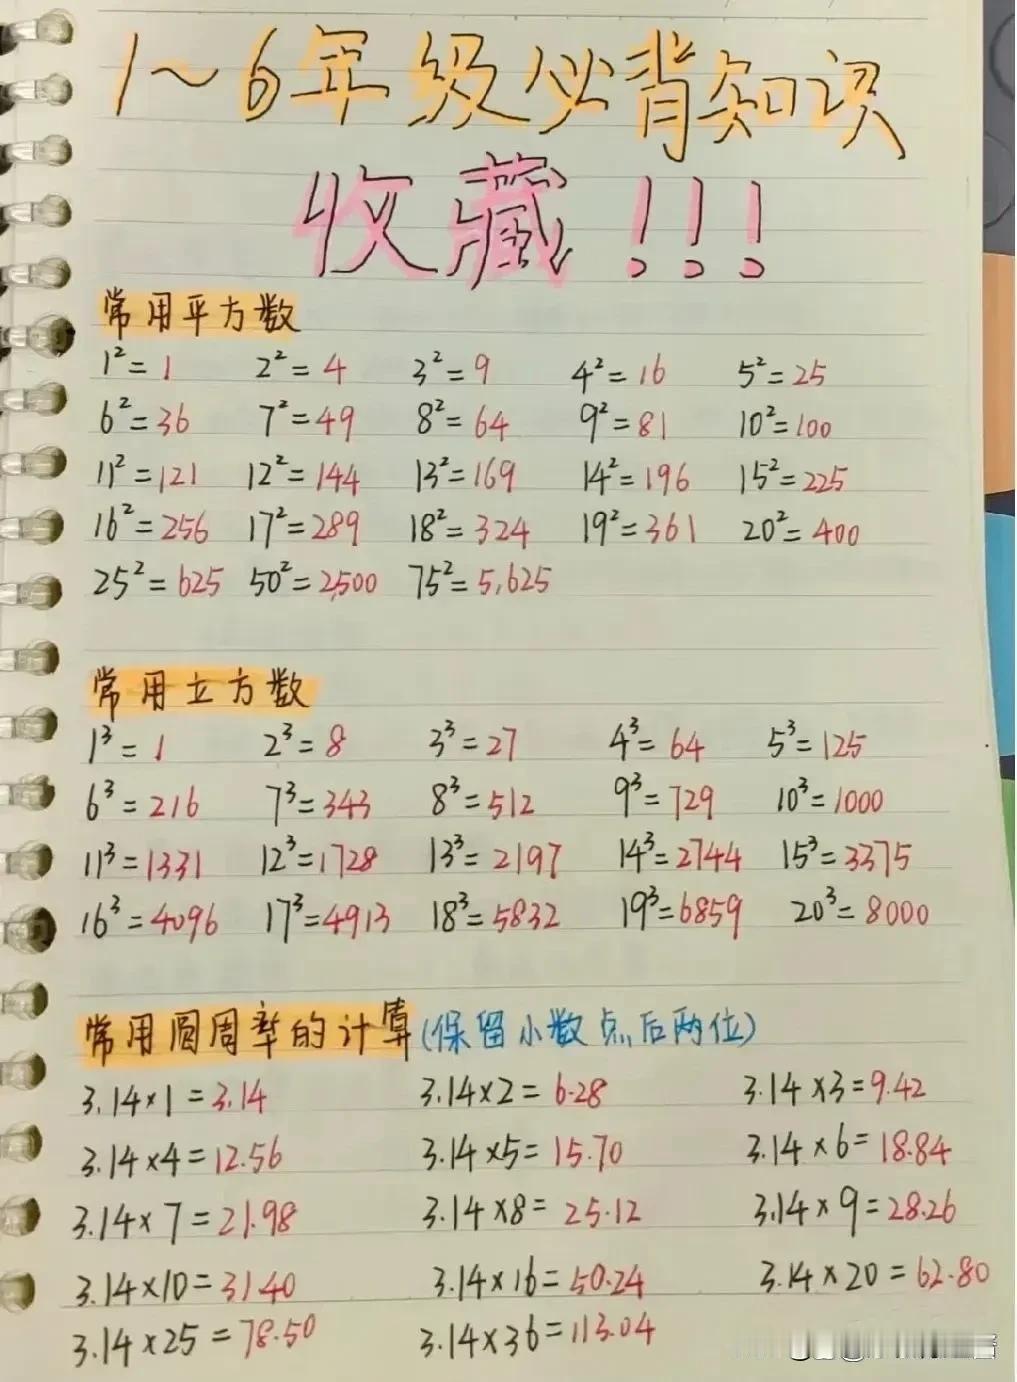 1~6年级必背知识
收藏!!!
常用平方数
1²=1 2²=4 3²=9 4²=16 5²=25
6²=36 7²=49 8²=64 9²=81 10²=100
11²=121 12²=144 13²=169 14²=196 15²=225
16²=256 17²=289 18²=324 19²=361 20²=400
25²=625 50²=2,500 75²=5,625
常用立方数
1³=1 2³=8 3³=27 4³=64 5³=125
6³=216 7³=343 8³=512 9³=729 10³=1000
11³=1331 12³=1728 13³=2197 14³=2744 15³=3375
16³=4096 17³=4913 18³=5832 19³=6859 20³=8000
常用圆周率的计算(保留小数点后两位)
3.14×1=3.14 3.14×2=6.28 3.14×3=9.42
3.14×4=12.56 3.14×5=15.70 3.14×6=18.84
3.14×7=21.98 3.14×8=25.12 3.14×9=28.26
3.14×10=31.40 3.14×16=50.24 3.14×20=62.80
3.14×25=78.50 3.14×36=113.04